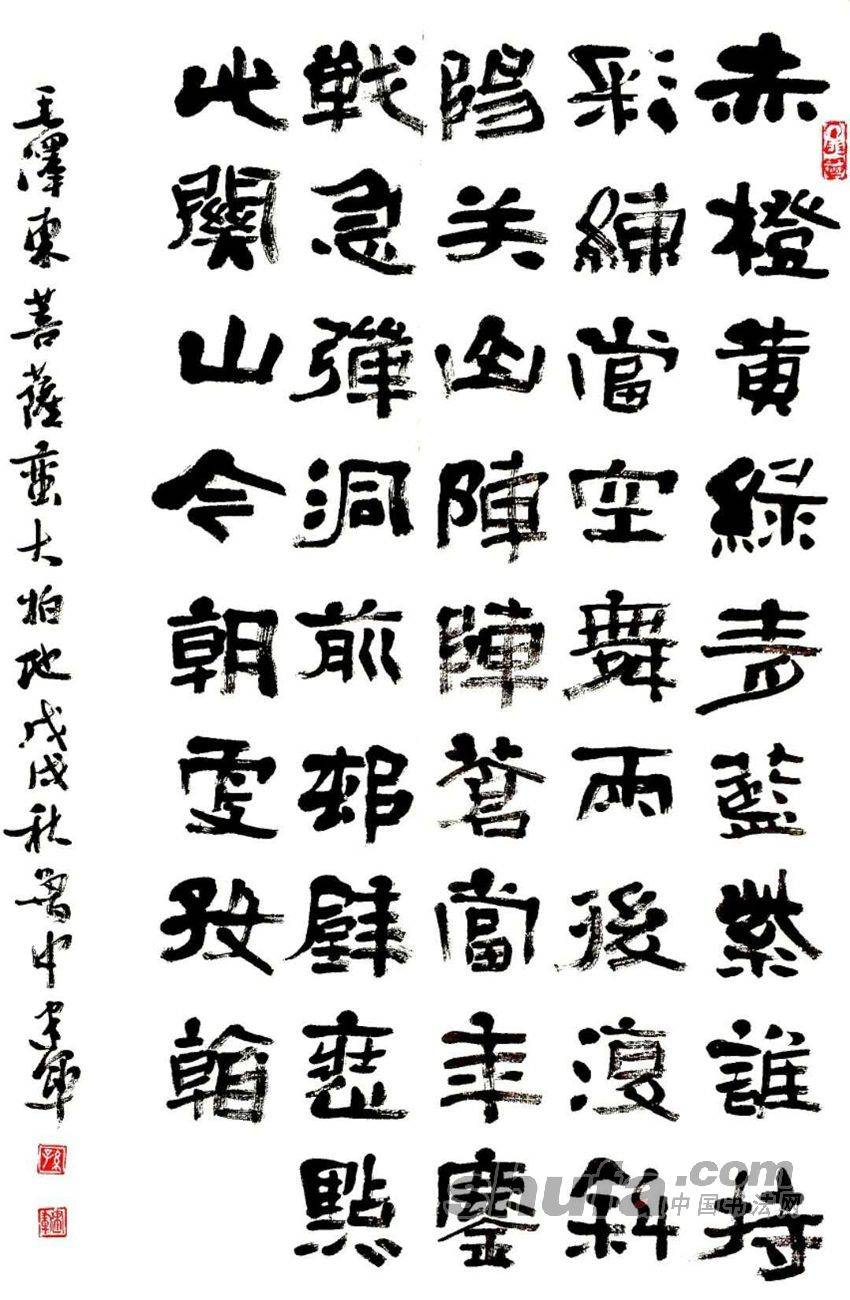 赤橙黄緑青藍紫誰持
彩練當空舞雨後復斜
陽关山陣陣蒼當年鏖
戦急彈洞前邨壁裝點
此關山今朝更好看
毛澤東菩薩蛮大柏地戊戌秋魯中建军
shufa.com
中国书法网